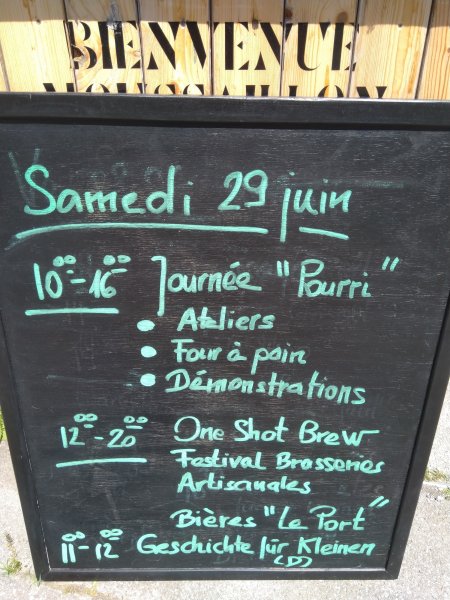 BIENVENUE
MOUSSAILLON
Samedi 29 juin
10⁰⁰-16⁰⁰ Journée "Pourri"
• Ateliers
• Four à pain
• Démonstrations
12⁰⁰-20⁰⁰ One Shot Brew
Festival Brasseries
Artisanales
Bières "Le Port"
11⁰⁰-12⁰⁰ Geschichte für Kleinen
(D)